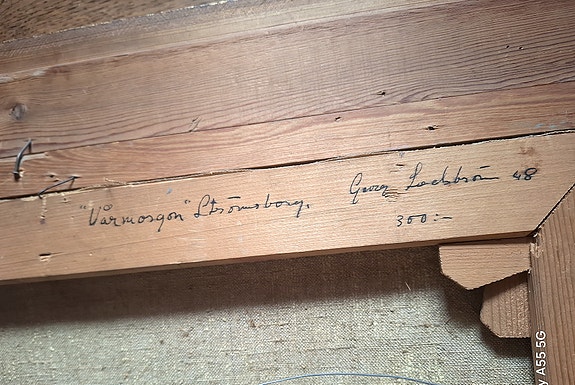 "Vårmorgon" Strömsborg. Georg Lachström 48
300:-
A55 5G